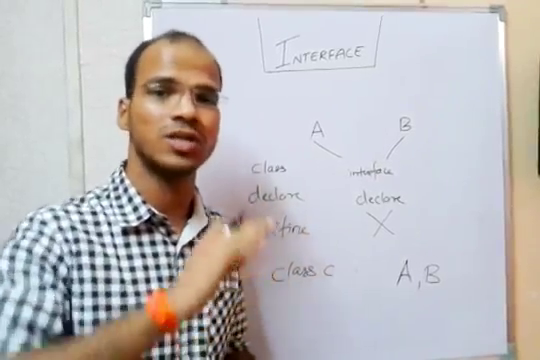 INTERFACE
A B
class interface
declare declare
X
class C A, B